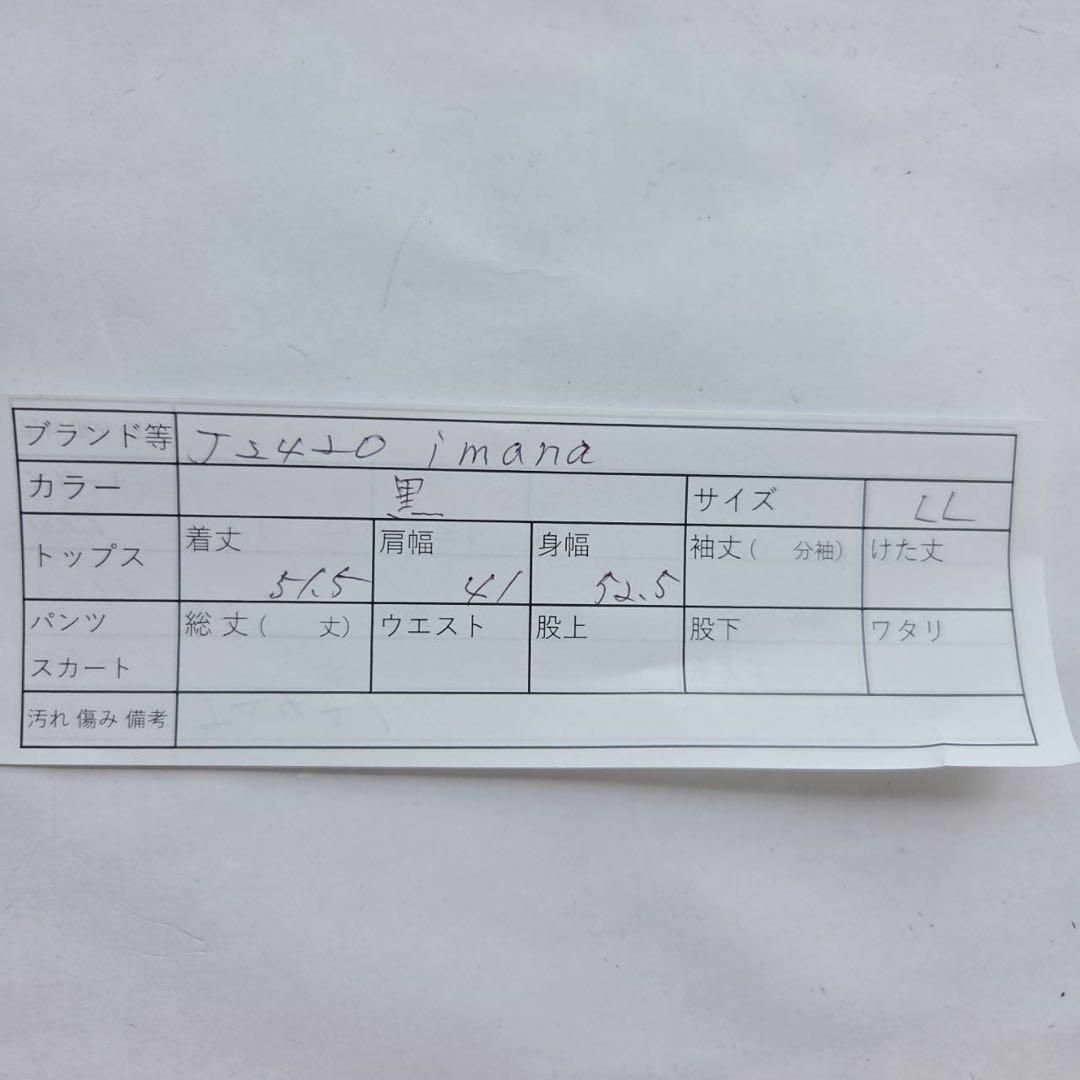 ブランド等 J2420 imana
カラー 黒 サイズ LL
トップス 着丈 51.5 肩幅 41 身幅 52.5 袖丈( 分袖) けた丈
パンツ 総丈( 丈) ウエスト 股上 股下 ワタリ
スカート
汚れ 傷み 備考